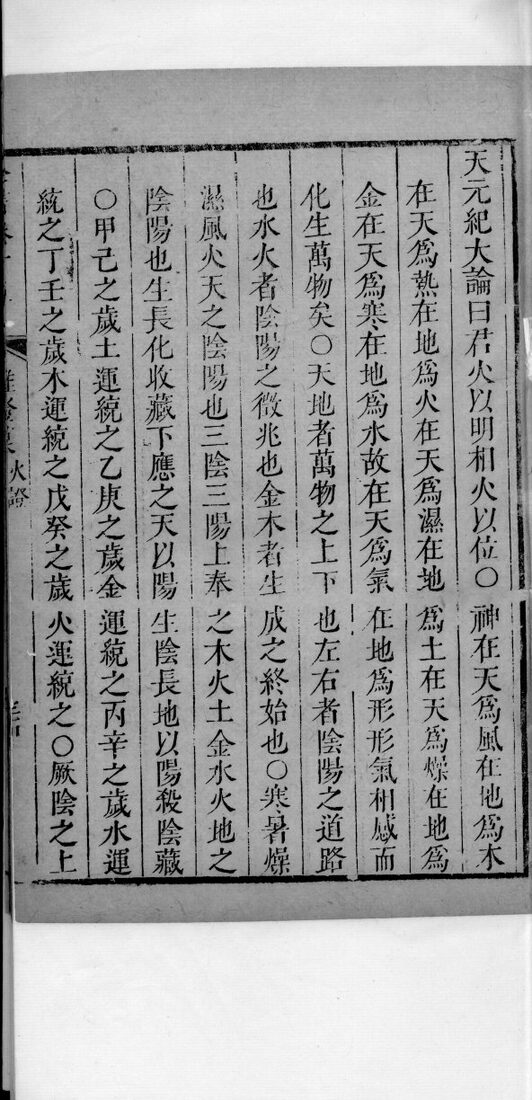 天元紀大論曰君火以明相火以位〇神在天爲風在地爲木
在天爲熱在地爲火在天爲濕在地爲土在天爲燥在地爲
金在天爲寒在地爲水故在天爲氣在地爲形形氣相感而
化生萬物矣〇天地者萬物之上下也左右者陰陽之道路
也水火者陰陽之徵兆也金木者生成之終始也〇寒暑燥
濕風火天之陰陽也三陰三陽上奉之木火土金水火地之
陰陽也生長化收藏下應之天以陽生陰長地以陽殺陰藏
〇甲己之歲土運統之乙庚之歲金運統之丙辛之歲水運
統之丁壬之歲木運統之戊癸之歲火運統之〇厥陰之上
火證